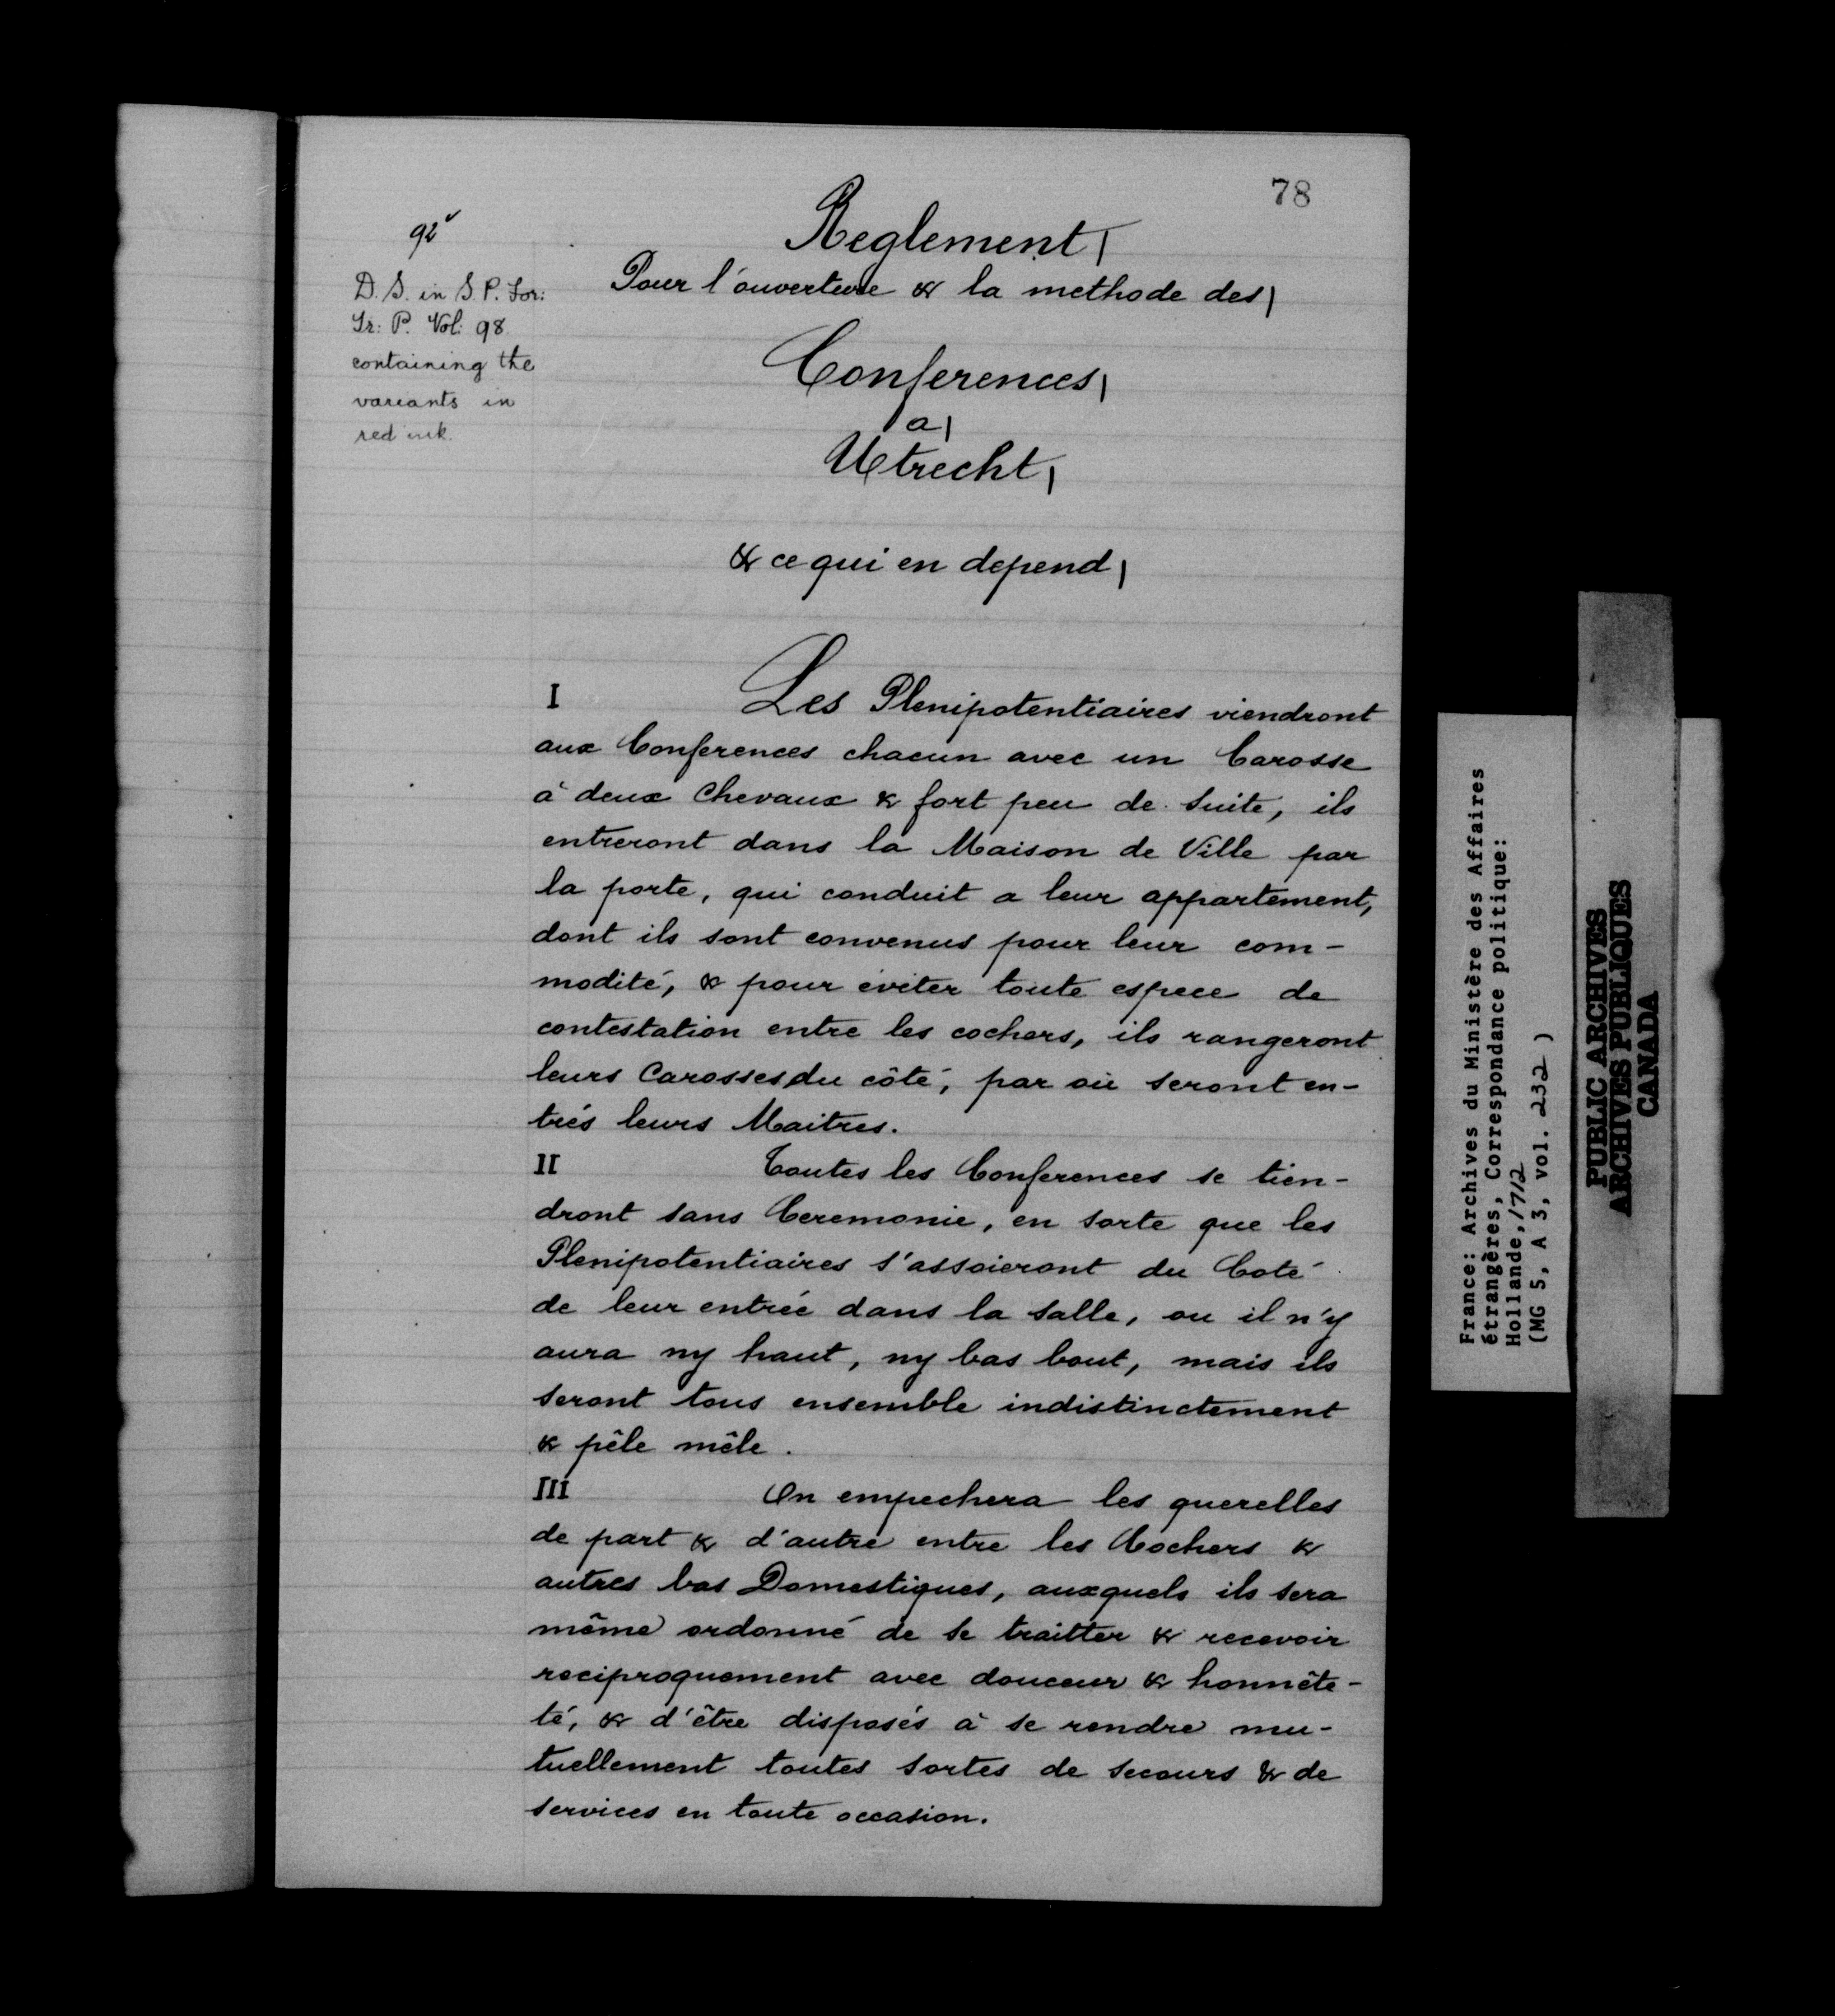 78
92v
D. S. in S. P. For:
Tr: P. Vol: 98
containing the
variants in
red ink.
Reglement
Pour l'ouverture & la methode des
Conferences
a
Utrecht
& ce qui en depend
I Les Plenipotentiaires viendront
aux Conferences chacun avec un Carosse
à deux Chevaux & fort peu de suite, ils
entreront dans la Maison de Ville par
la porte, qui conduit a leur appartement,
dont ils sont convenus pour leur com-
modité, & pour éviter toute espece de
contestation entre les cochers, ils rangeront
leurs Carosses du côté, par où seront en-
trés leurs Maitres.
II Toutes les Conferences se tien-
dront sans Ceremonie, en sorte que les
Plenipotentiaires s'assoieront du Coté
de leur entrée dans la salle, ou il n'y
aura ny haut, ny bas bout, mais ils
seront tous ensemble indistinctement
& pêle mêle.
III On empechera les querelles
de part & d'autre entre les Cochers &
autres bas Domestiques, auxquels ils sera
même ordonné de se traitter & recevoir
reciproquement avec douceur & honnête-
té, & d'être disposés à se rendre mu-
tuellement toutes sortes de secours & de
services en toute occasion.
France: Archives du Ministère des Affaires
étrangères, Correspondance politique:
Hollande, 1712
(MG 5, A 3, vol. 232 )
PUBLIC ARCHIVES
ARCHIVES PUBLIQUES
CANADA